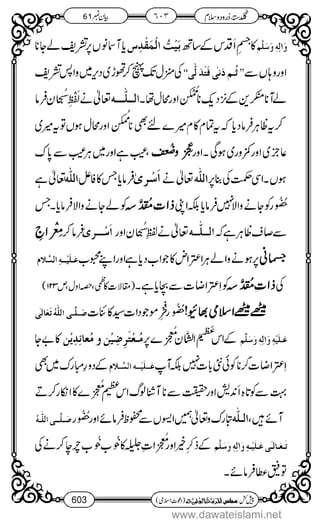 بیان نمبر 61 ۶۰۳ گلدستۂ درود و سلام
وَاٰلِہٖ وَسَلَّم کا جسمِ اَقدس کے ساتھ بَیْتُ الْمُقَدَّس یا آسمانوں پر تشریف لے جانا
اور وہاں سے ’’ثُمَّ دَنٰی فَتَدَلّٰی‘‘ کی منزل تک پہنچ کر تھوڑی دیر میں واپس تشریف
لے آنا منکرین کے نزدیک ناممکن اور محال تھا۔ اللّٰہ تعالٰی نے لفظِ سُبْحٰن فرما
کر یہ ظاہر فرما دیا کہ یہ تمام کام میرے لئے بھی ناممکن اور محال ہوں تو یہ میری
عاجزی اور کمزوری ہوگی۔ اور عجز و ضُعف، عیب ہے اور میں ہر عیب سے پاک
ہوں۔ اسی حکمت کی بنا پر اللّٰہ تعالٰی نے اَسْرٰی فرمایا جس کا فاعل اللّٰہ تعالٰی ہے
حضور کو جانے والا نہیں فرمایا بلکہ اپنی ذاتِ مُقدَّسہ کو لے جانے والا فرمایا۔ جس
سے صاف ظاہر ہے کہ اللّٰہ تعالٰی نے لفظِ سُبْحٰن اور اَسْرٰی فرما کر مِعْراجِ
جسمانی پر ہونے والے ہر اعتراض کا جواب دیا ہے اور اپنے محبوب عَلَیْہِ السَّلَام کی
ذاتِ مُقدَّسہ کو اعتراضات سے بچایا ہے۔ (مقالاتِ کاظمی، حصہ اول، ص ۱۲۳)
میٹھے میٹھے اسلامی بھائیو! حُضُور، فخرِ موجودات، سیدِ کائنات صَلَّی اللّٰہُ تَعَالٰی
عَلَیْہِ وَاٰلِہٖ وَسَلَّم کے اس عظیمُ الشَّان معجزے پر مُعْتَرِضِین و مُعانِدِین کا بے جا
اِعتراضات کرنا کوئی نئی بات نہیں بلکہ آپ عَلَیْہِ السَّلَام کے دور مبارک میں بھی
بہت سے کوتاہ اندیش اور حقیقت سے ناآشنا لوگ اس عظیم معجزے کا انکار کرتے
آئے ہیں، اللّٰہ تبارک وتعالٰی ہمیں ایسوں سے محفوظ فرمائے اور حُضُور صَلَّی اللّٰہُ
تَعَالٰی عَلَیْہِ وَاٰلِہٖ وَسَلَّم کے ذکرِ خیر اور معجزاتِ جلیلہ کا خوب خوب چرچا کرنے کی
توفیق عطا فرمائے۔
603
www.dawateislami.net